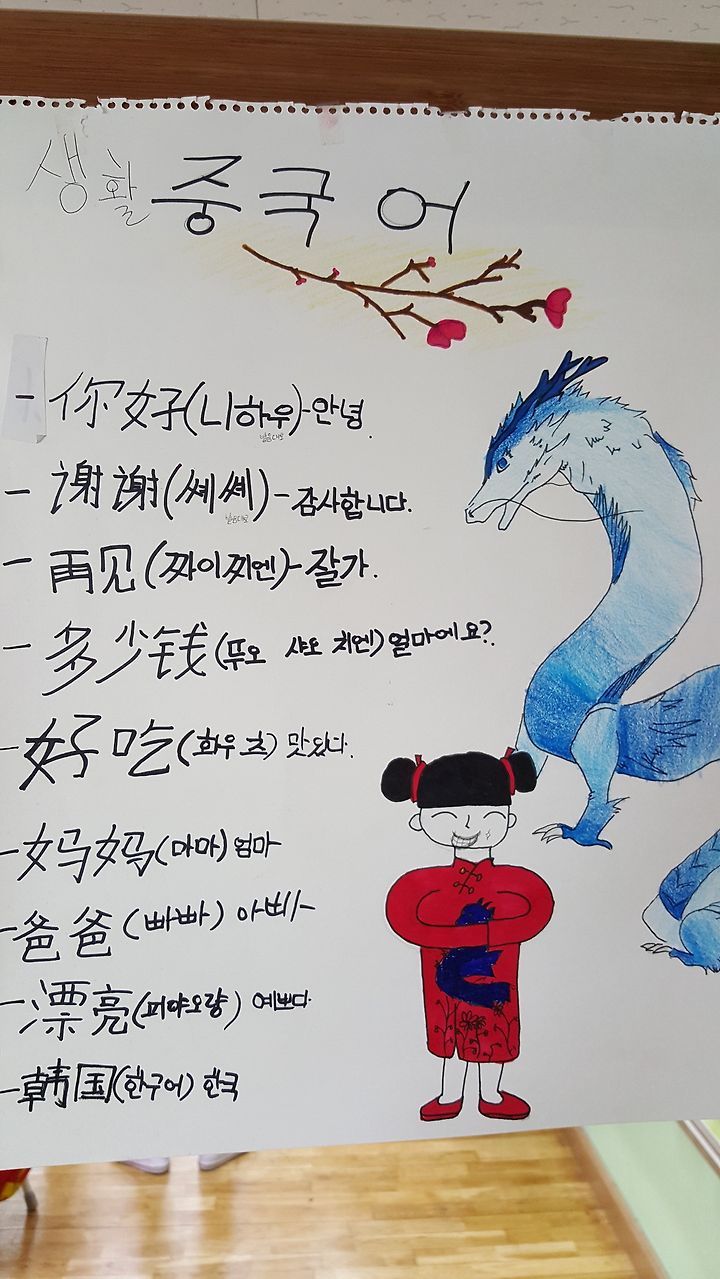 생활 중국어
- 你好(니하우)-안녕.
- 谢谢(쎼쎼)-감사합니다.
- 再见(짜이찌엔)-잘가.
- 多少钱(뚜오 샤오 치엔)얼마에요?
- 好吃(화우 츠) 맛있다.
- 妈妈(마마) 엄마
- 爸爸(빠빠) 아빠
- 漂亮(피야오량) 예쁘다.
- 韩国(한구어) 한국